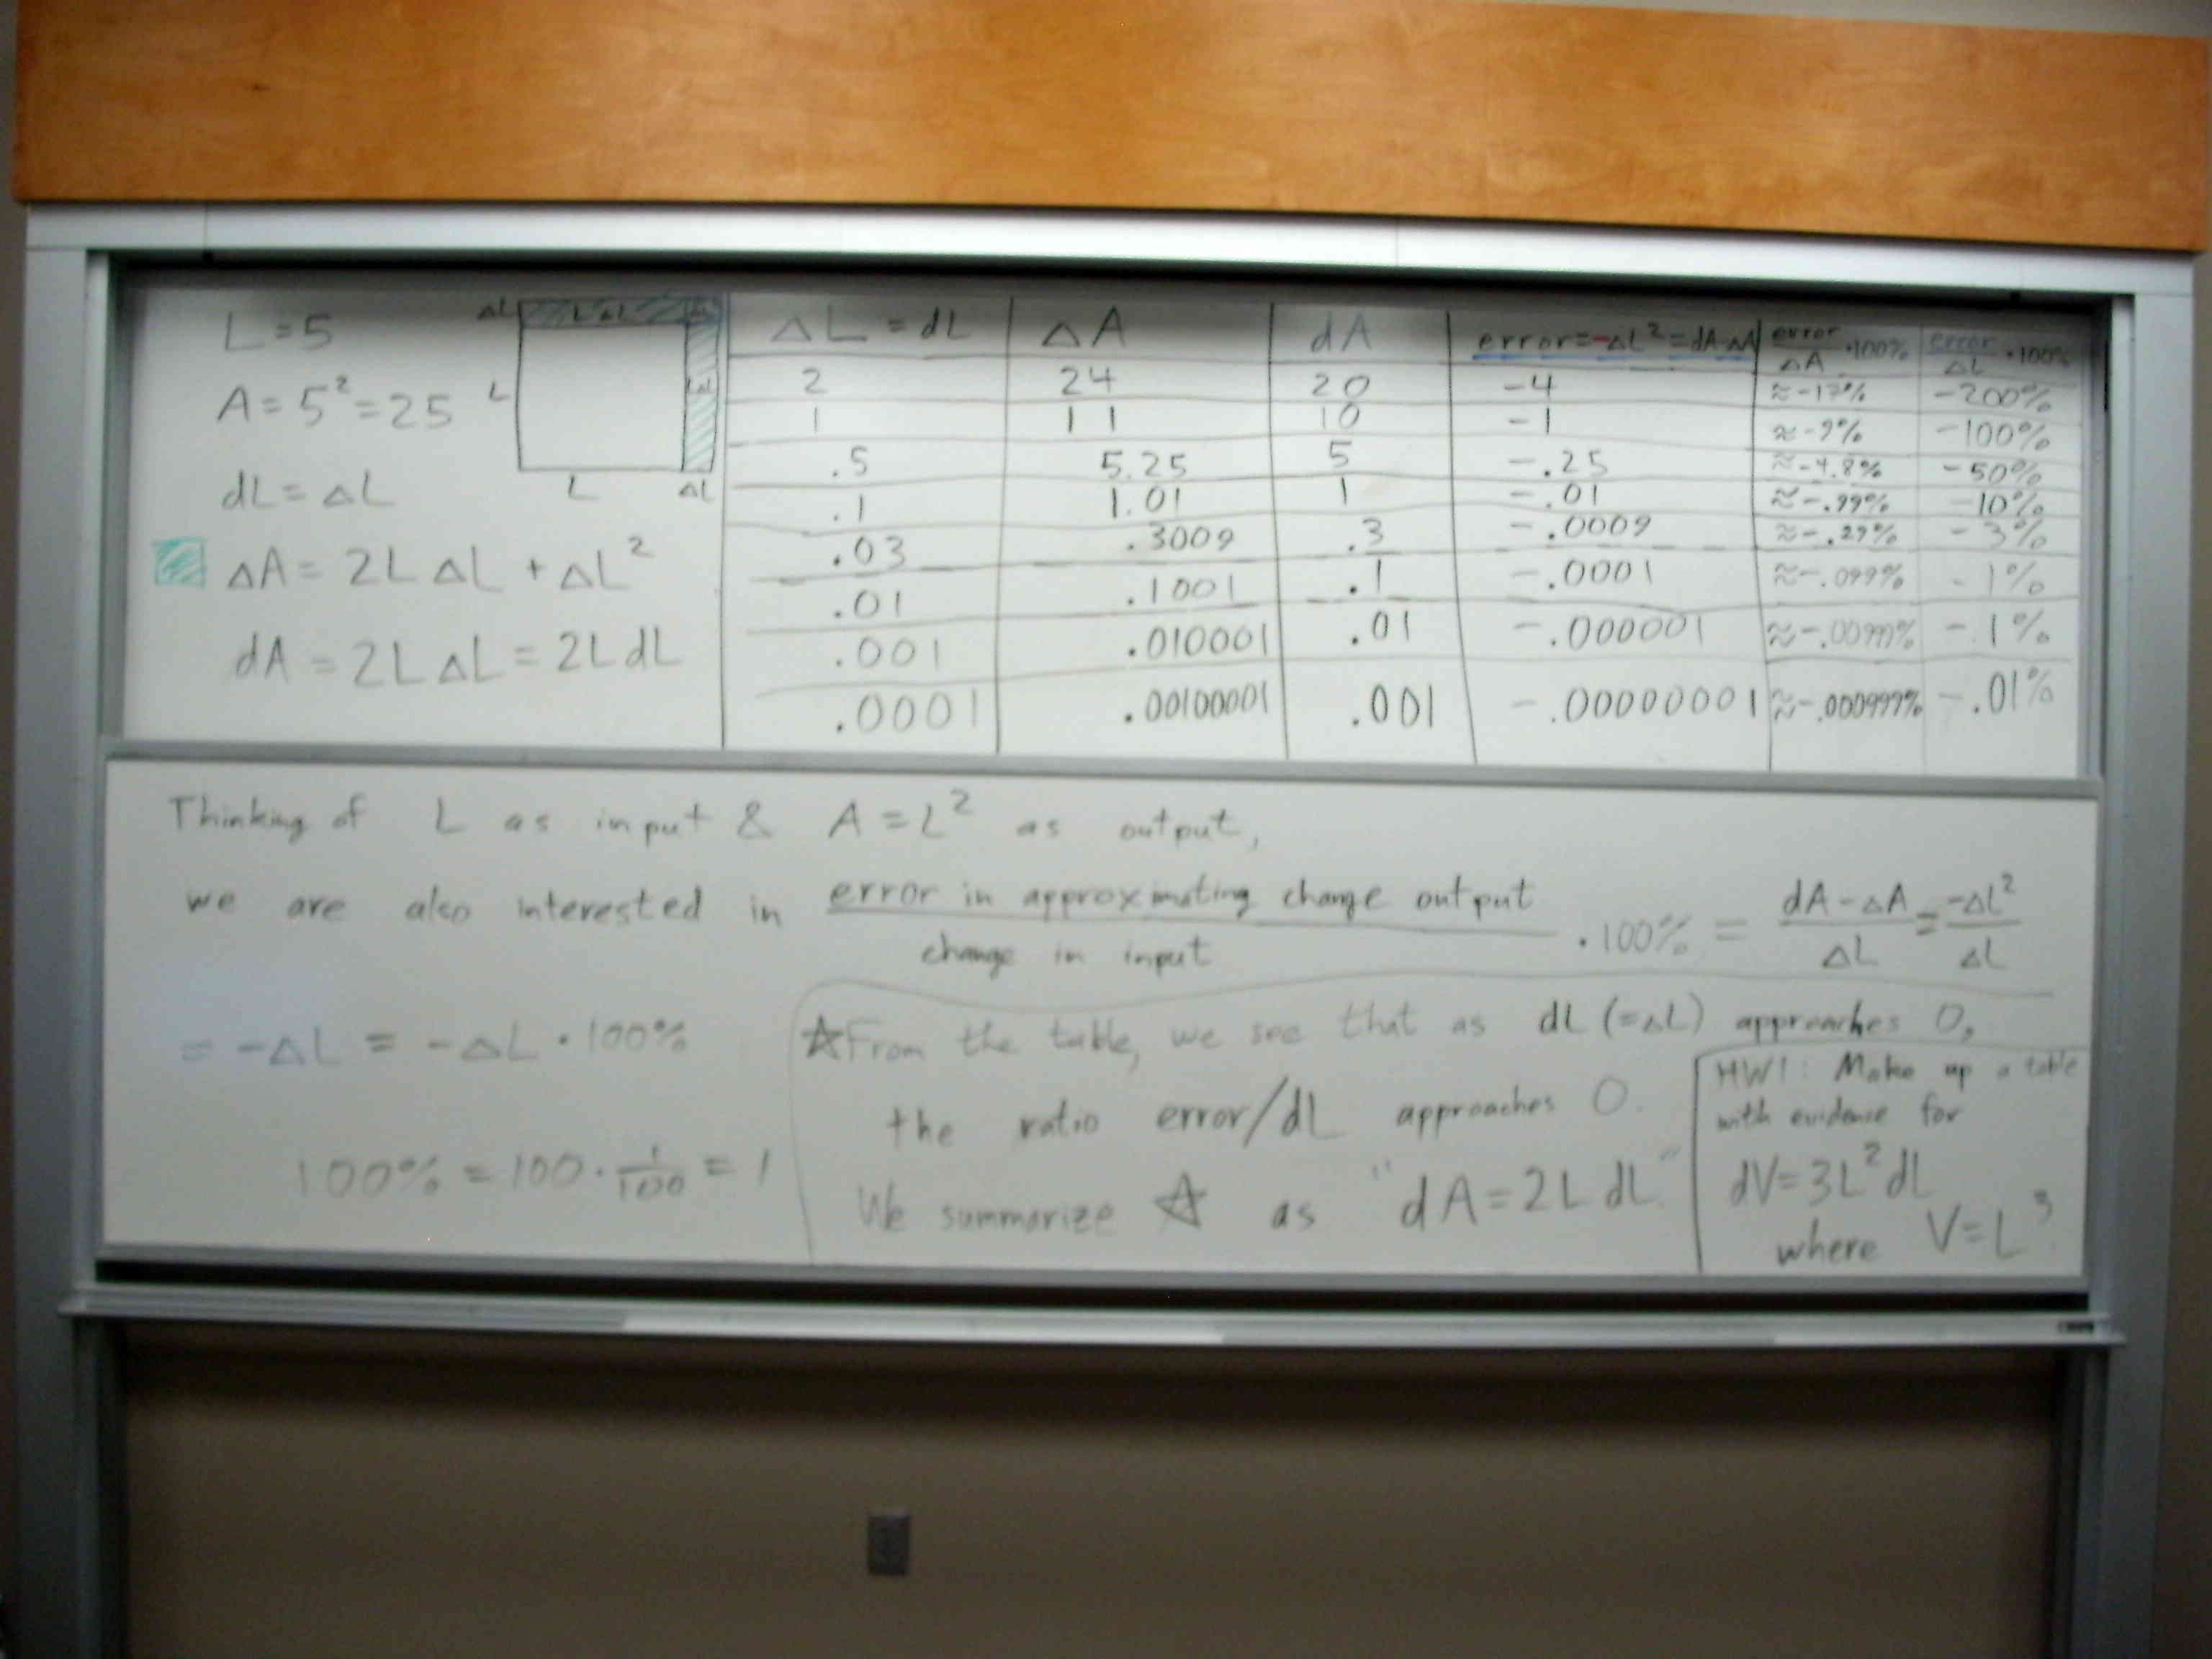 L=5
A=5²=25
dL=ΔL
ΔA=2LΔL+ΔL²
dA=2LΔL=2LdL
ΔL LΔL
L
L ΔL
ΔL=dL ΔA dA error=-ΔL²=dA-ΔA error/ΔA ·100% error/ΔL ·100%
2 24 20 -4 ≈-17% -200%
1 11 10 -1 ≈-9% -100%
.5 5.25 5 -.25 ≈-4.8% -50%
.1 1.01 1 -.01 ≈-.99% -10%
.03 .3009 .3 -.0009 ≈-.29% -3%
.01 .1001 .1 -.0001 ≈-.099% -1%
.001 .010001 .01 -.000001 ≈-.00999% -.1%
.0001 .00100001 .001 -.00000001 ≈-.000999% -.01%
Thinking of L as input & A=L² as output,
we are also interested in error in approximating change output / change in input ·100% = dA-ΔA/ΔL = -ΔL²/ΔL
= -ΔL = -ΔL·100%
100% = 100·1/100 = 1
☆From the table, we see that as dL (=ΔL) approaches 0,
the ratio error/dL approaches 0.
We summarize ☆ as "dA=2LdL."
HW1: Make up a table
with evidence for
dV=3L²dL
where V=L³.